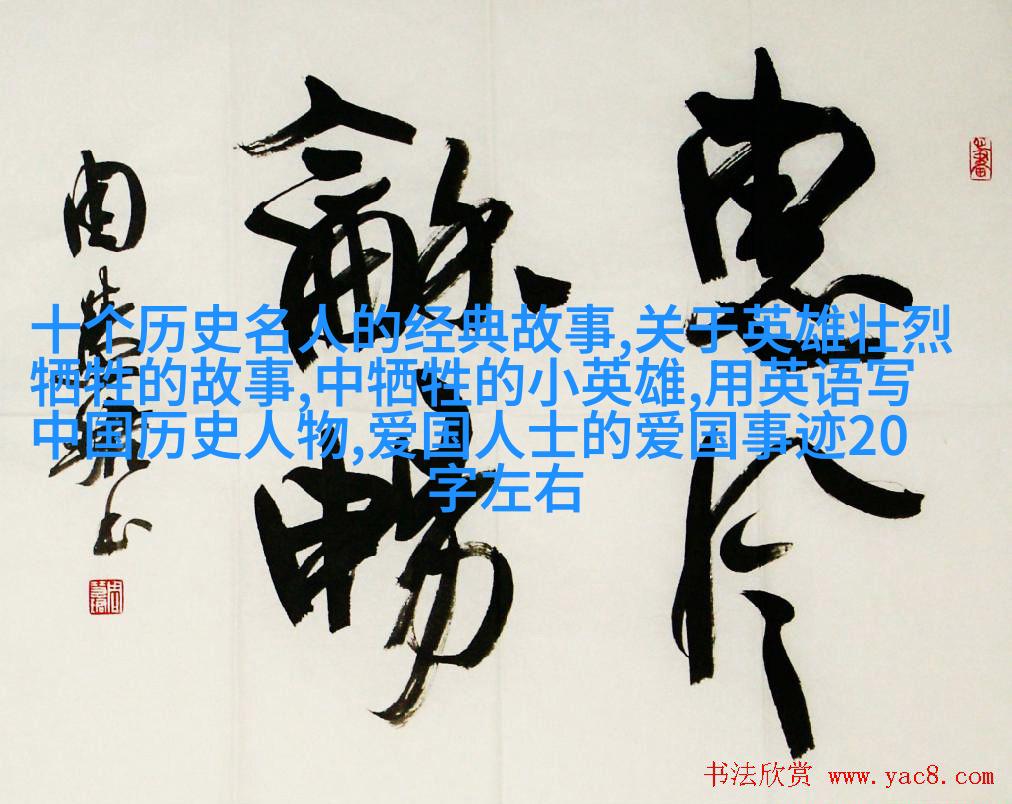 惠风
龢畅
十个历史名人的经典故事,关于英雄壮烈
牺牲的故事,中牺牲的小英雄,用英语写
中国历史人物,爱国人士的爱国事迹20
字左右
书法欣赏 www.yac8.com